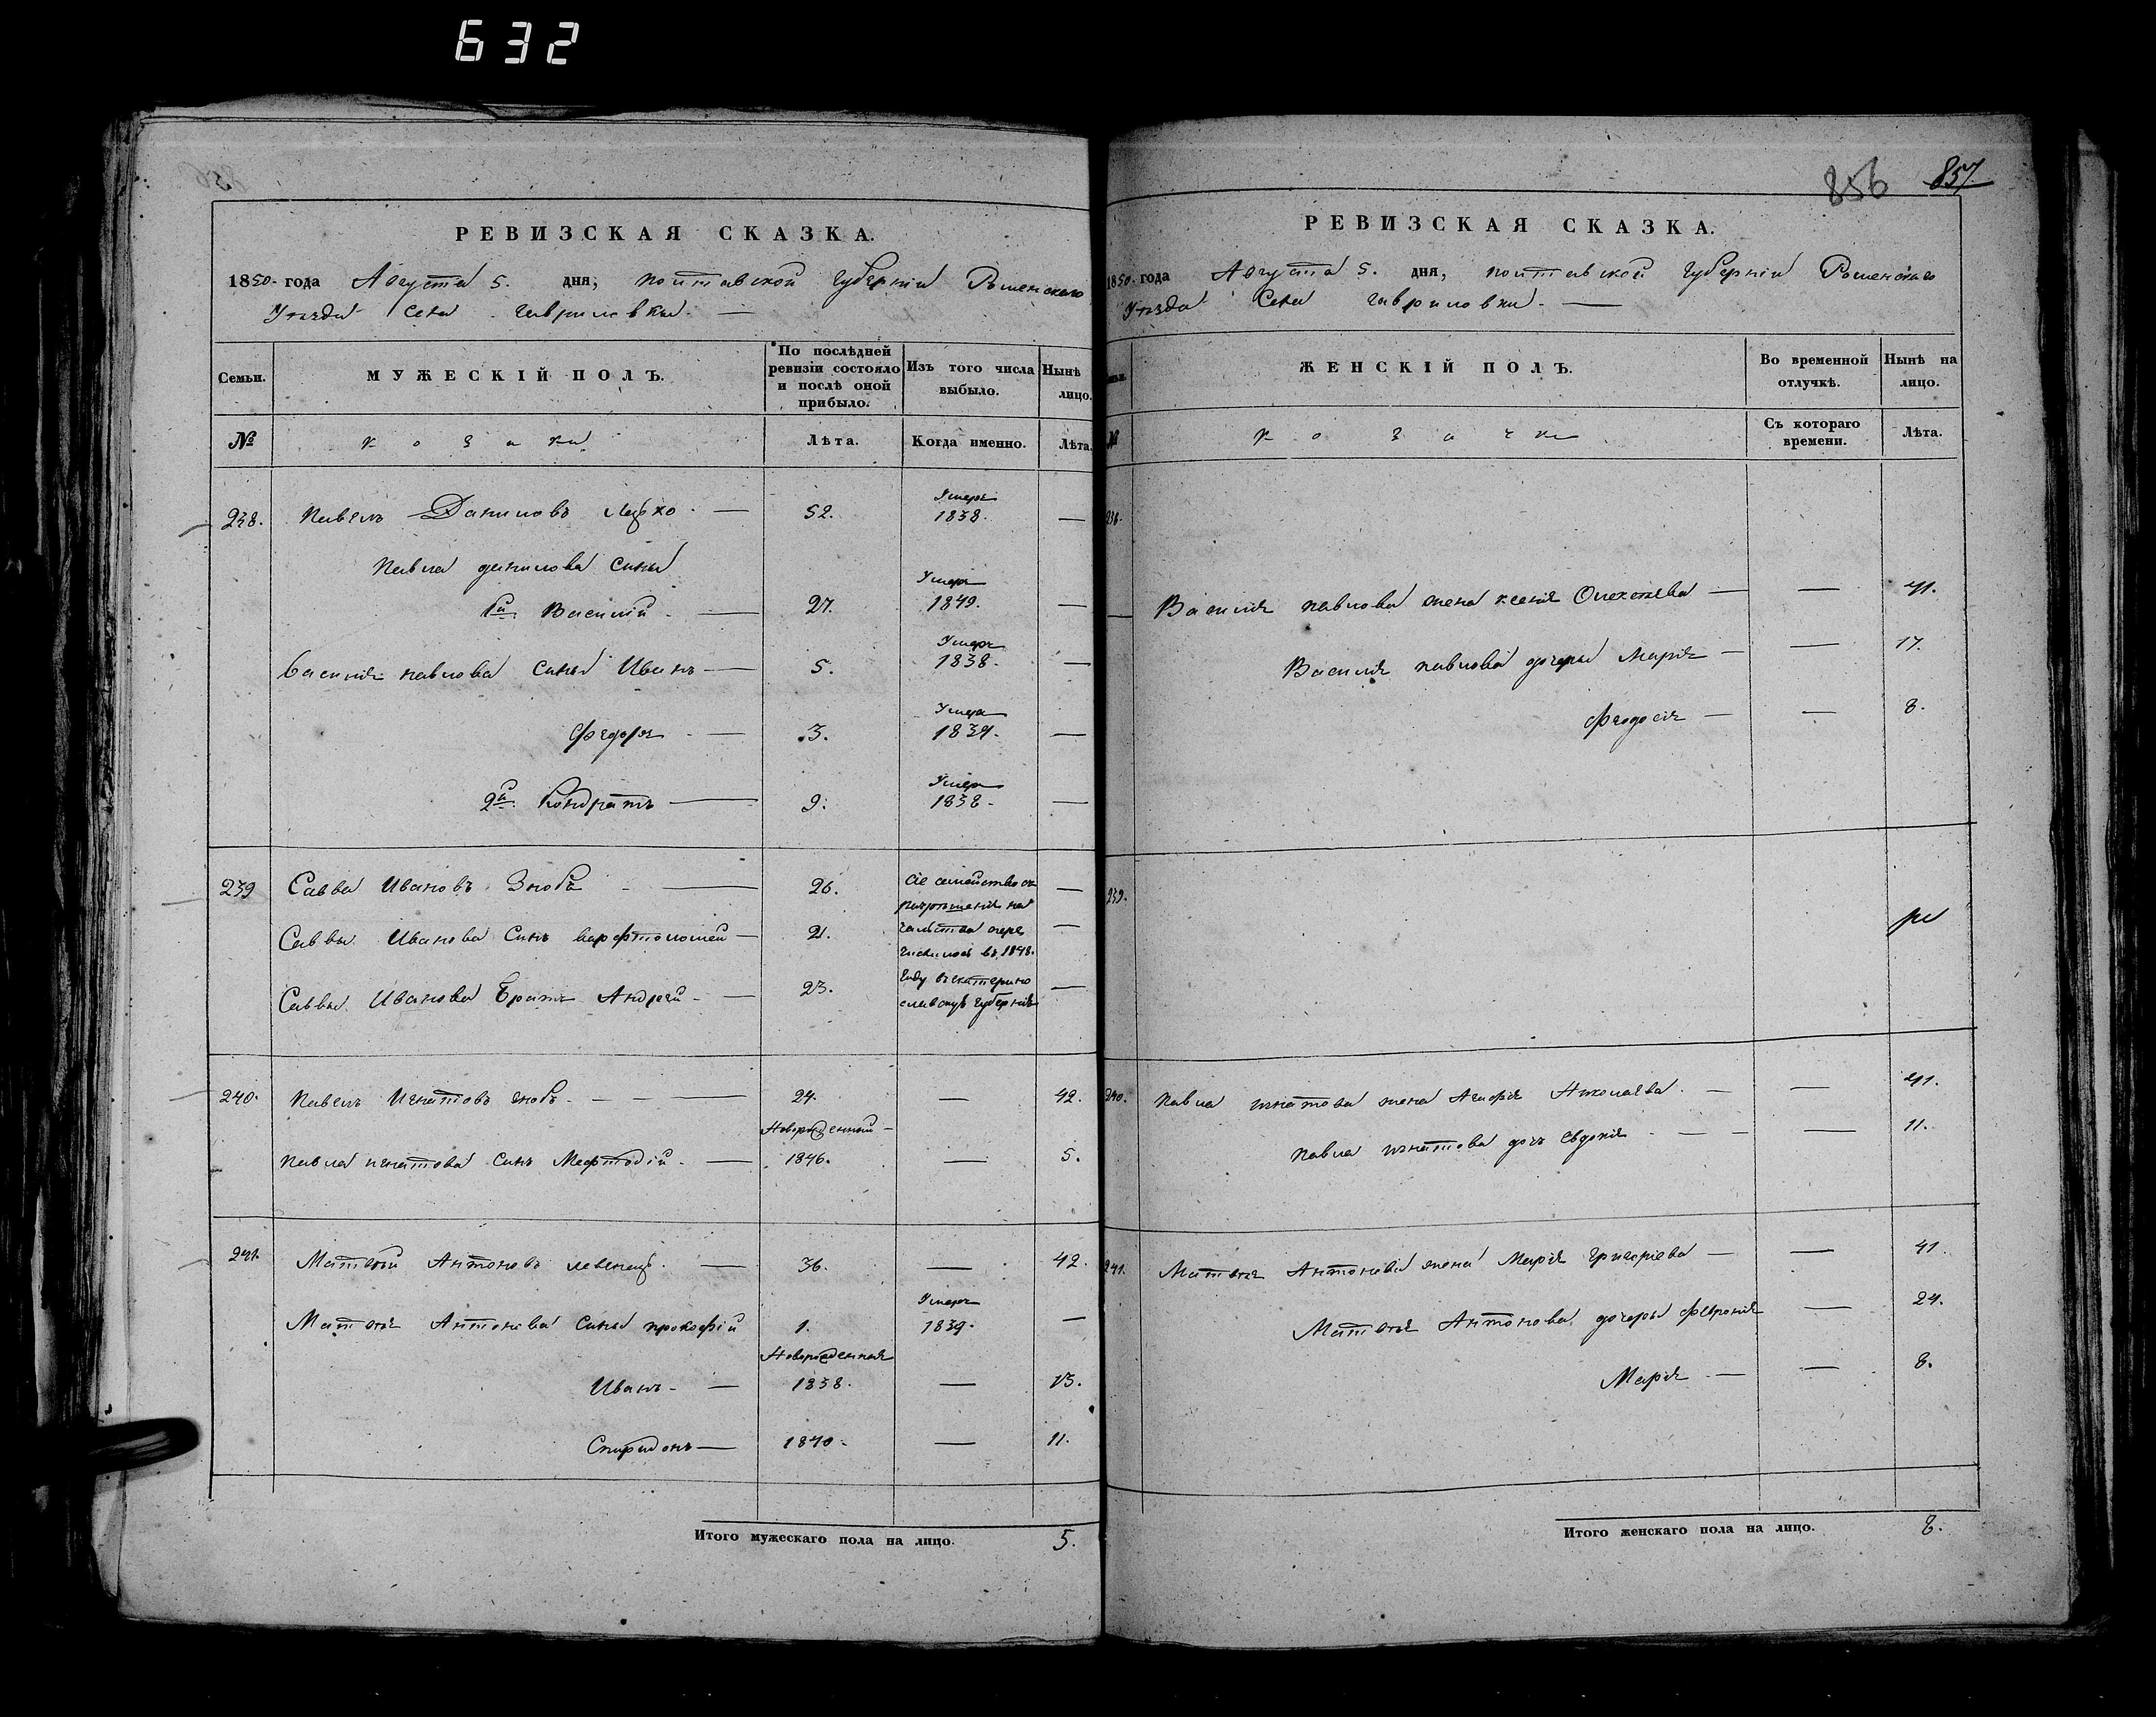 632
РЕВИЗСКАЯ СКАЗКА.
1850. года Августа 5. дня, полтавской губерніи Роменскаго
Уѣзда Села гавриловки.
Семьи.
МУЖЕСКІЙ ПОЛЪ.
По послѣдней ревизіи состояло и послѣ оной прибыло.
Изъ того числа выбыло.
Нынѣ лицо.
№
козаки
Лѣта.
Когда именно.
Лѣта.
238. Павелъ Даниловъ 52. Умеръ 1838. —
Павла данилова сины
1й Василій — 27. Умеръ 1849. —
Василія павлова сины Иванъ — 5. Умеръ 1838. —
Федоръ — 3. Умеръ —
2й Кондратъ — 9. Умеръ 1838. —
239 Савва Ивановъ Знобъ — 26. —
Саввы Иванова Синъ варфтоломей — 21. —
Саввы Иванова Братъ Андрей — 23. —
Сіе семейство съ
разрѣшенія на
чальства пере
числилось въ 1848.
году въ екатерино
славскую губернію
240. Павелъ Игнатовъ знобъ — 24. — 42.
Новорожденный
Павла игнатова Синъ Мефтодій — 1846. — 5.
241. Матвѣй Антоновъ левенецъ — 36. — 42.
Матвѣя Антонова сины прокофій 1. Умеръ 1839. —
Новорожденныя
Иванъ — 1838. — 13.
Спиридонъ — 1840. — 11.
Итого мужескаго пола на лицо. 5.
856 857.
РЕВИЗСКАЯ СКАЗКА.
1850. года Августа 5. дня, полтавской губерніи Роменскаго
Уѣзда Села гавриловки. —
ЖЕНСКІЙ ПОЛЪ.
Во временной отлучкѣ.
Нынѣ на лицо.
№
козачки
Съ котораго времени.
Лѣта.
238.
Василія павлова жена ксенія Олексѣева — — 41.
Василія павлова дочеры Марія — — 17.
Феодосія — — 8.
239.
240. Павла игнатова жена Агафія Николаева — — 41.
Павла игнатова дочь Евдокія — — 11.
241. Матвѣя Антонова жена Марія григоріева — — 41.
Матвѣя Антонова дочеры Февронія — 24.
Марія — — 8.
Итого женскаго пола на лицо. 8.